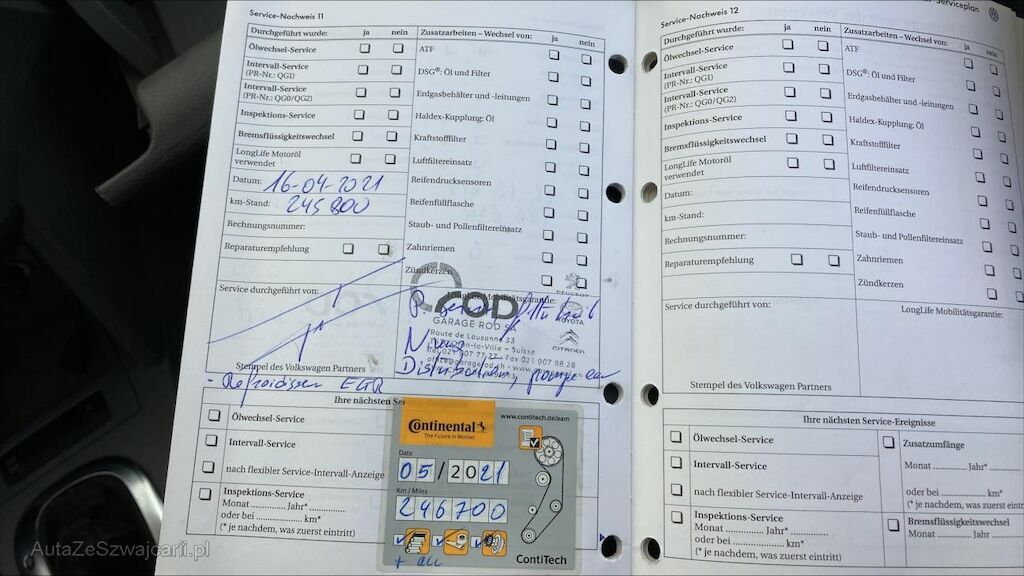 Service-Nachweis 11
Durchgeführt wurde: ja nein
Ölwechsel-Service
Intervall-Service
(PR-Nr.: QG1)
Intervall-Service
(PR-Nr.: QG0/QG2)
Inspektions-Service
Bremsflüssigkeitswechsel
LongLife Motoröl
verwendet
Datum: 16-04-2021
km-Stand: 245 800
Rechnungsnummer:
Reparaturempfehlung
Service durchgeführt von:
Stempel des Volkswagen Partners
Zusatzarbeiten – Wechsel von: ja nein
ATF
DSG®: Öl und Filter
Erdgasbehälter und -leitungen
Haldex-Kupplung: Öl
Kraftstofffilter
Luftfiltereinsatz
Reifendrucksensoren
Reifenfüllflasche
Staub- und Pollenfiltereinsatz
Zahnriemen
Zündkerzen
Mobilitätsgarantie:
ROD
PEUGEOT
TOYOTA
CITROËN
GARAGE ROD SA
Route de Lausanne 33
-la-Ville – Suisse
Fax 021 907 98 28
Distribution, pompe eau
- Refroidisseur EGR
Ihre nächsten
Ölwechsel-Service
Intervall-Service
nach flexibler Service-Intervall-Anzeige
Inspektions-Service
Monat Jahr*
oder bei km*
(* je nachdem, was zuerst eintritt)
www.contitech.de/aam
Continental
The Future in Motion
Date
05/2021
Km / Miles
246700
+ acc
ContiTech
Serviceplan
Service-Nachweis 12
Durchgeführt wurde: ja nein
Ölwechsel-Service
Intervall-Service
(PR-Nr.: QG1)
Intervall-Service
(PR-Nr.: QG0/QG2)
Inspektions-Service
Bremsflüssigkeitswechsel
LongLife Motoröl
verwendet
Datum:
km-Stand:
Rechnungsnummer:
Reparaturempfehlung
Service durchgeführt von:
Stempel des Volkswagen Partners
Zusatzarbeiten – Wechsel von: ja nein
ATF
DSG®: Öl und Filter
Erdgasbehälter und -leitungen
Haldex-Kupplung: Öl
Kraftstofffilter
Luftfiltereinsatz
Reifendrucksensoren
Reifenfüllflasche
Staub- und Pollenfiltereinsatz
Zahnriemen
Zündkerzen
LongLife Mobilitätsgarantie:
Ihre nächsten Service-Ereignisse
Ölwechsel-Service
Intervall-Service
nach flexibler Service-Intervall-Anzeige
Inspektions-Service
Monat Jahr*
oder bei km*
(* je nachdem, was zuerst eintritt)
Zusatzumfänge
Monat Jahr*
oder bei km*
Bremsflüssigkeitswechsel
Monat Jahr
AutaZeSzwajcarii.pl